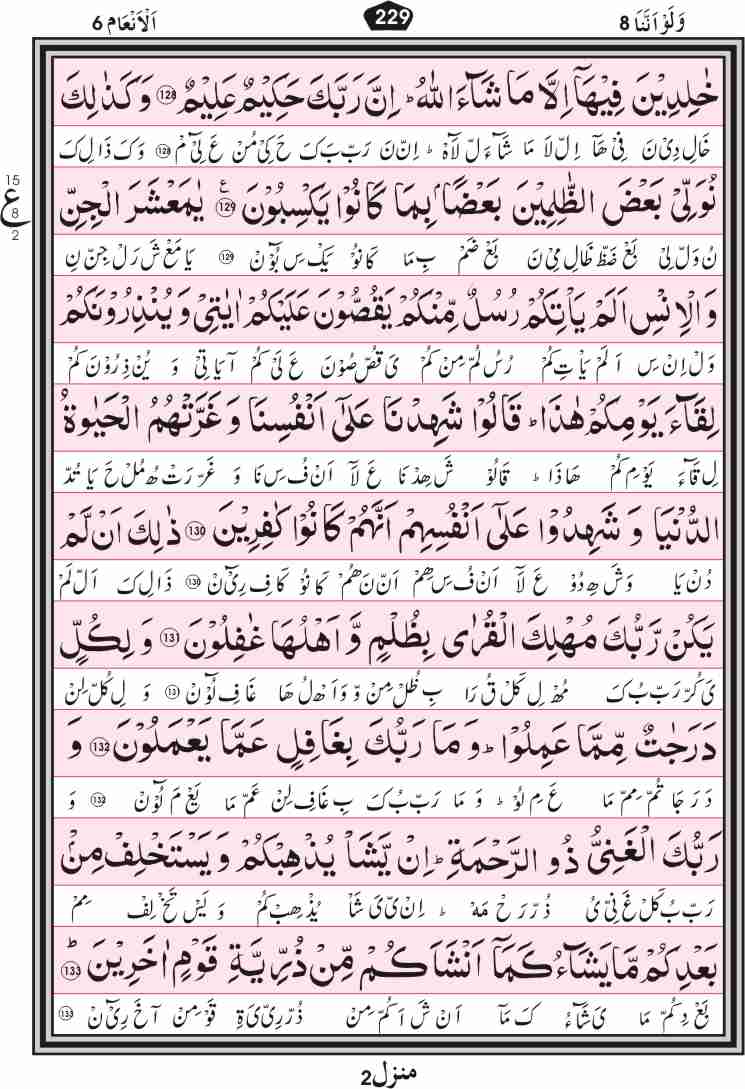 وَلَوْ اَنَّنَا 8
229
اَلْاَنْعَام 6
خٰلِدِيْنَ فِيْهَاۤ اِلَّا مَا شَآءَ اللهُ ؕ اِنَّ رَبَّكَ حَكِيْمٌ عَلِيْمٌ ۝128 وَكَذٰلِكَ
خَالِ دِىْ نَ فِىْ هَآ اِلْ لَا مَا شَآءَ لْ لَآهْ ؕ اِنْ نَ رَبْ بَ كَ حَ كِىْ مُنْ عَ لِىْ مْ ۝128 وَ كَ ذَا لِ كَ
15
ع
8
2
نُوَلِّيْ بَعْضَ الظّٰلِمِيْنَ بَعْضًاۢ بِمَا كَانُوْا يَكْسِبُوْنَ ۝129ع يٰمَعْشَرَ الْجِنِّ
نُ وَلْ لِىْ بَعْ ضَظْ ظَالِ مِىْ نَ بَعْ ضَمْ بِ مَا كَانُوْ يَكْ سِ بُوْنْ ۝129 يَا مَعْ شَ رَلْ جِنْ نِ
وَالْاِنْسِ اَلَمْ يَاْتِكُمْ رُسُلٌ مِّنْكُمْ يَقُصُّوْنَ عَلَيْكُمْ اٰيٰتِيْ وَيُنْذِرُوْنَكُمْ
وَلْ اِنْ سِ اَلَمْ يَأْ تِ كُمْ رُسُ لُمْ مِنْ كُمْ ىَ قُصْ صُوْنَ عَ لَىْ كُمْ آ يَا تِىْ وَ يُنْ ذِرُوْنَ كُمْ
لِقَآءَ يَوْمِكُمْ هٰذَا ؕ قَالُوْا شَهِدْنَا عَلٰٓى اَنْفُسِنَا وَغَرَّتْهُمُ الْحَيٰوةُ
لِ قَآءَ يَوْمِ كُمْ هَاذَا ؕ قَالُوْ شَ هِدْ نَا عَ لَآ اَنْ فُ سِ نَا وَ غَرْ رَتْ هُ مُلْ حَ يَا تُدْ
الدُّنْيَا وَ شَهِدُوْا عَلٰٓى اَنْفُسِهِمْ اَنَّهُمْ كَانُوْا كٰفِرِيْنَ ۝130 ذٰلِكَ اَنْ لَّمْ
دُنْ يَا وَشَ هِ دُوْ عَ لَآ اَنْ فُ سِ هِمْ اَنْ نَ هُمْ كَانُوْ كَافِ رِىْ نْ ۝130 ذَالِ كَ اَلْ لَمْ
يَكُنْ رَّبُّكَ مُهْلِكَ الْقُرٰى بِظُلْمٍ وَّاَهْلُهَا غٰفِلُوْنَ ۝131 وَلِكُلٍّ
ىَ كُرْ رَبْ بُ كَ مُهْ لِ كَلْ قُ رَا بِ ظُلْ مِنْ وْ وَ اَهْ لُ هَا غَافِ لُوْنْ ۝13 وَ لِ كُلْ لِنْ
دَرَجٰتٌ مِّمَّا عَمِلُوْا ؕ وَمَا رَبُّكَ بِغَافِلٍ عَمَّا يَعْمَلُوْنَ ۝132 وَ
دَ رَ جَا تُمْ مِمْ مَا عَ مِ لُوْ ؕ وَ مَا رَبْ بُ كَ بِ غَافِ لِنْ عَمْ مَا يَعْ مَ لُوْنْ ۝132 وَ
رَبُّكَ الْغَنِيُّ ذُو الرَّحْمَةِ ؕ اِنْ يَّشَاْ يُذْهِبْكُمْ وَيَسْتَخْلِفْ مِنْۢ
رَبْ بُ كَلْ غَ نِىْ ىُ ذُرْ رَحْ مَهْ ؕ اِنْ ىْ ىَ شَاْ يُذْهِبْ كُمْ وَ يَسْ تَخْ لِفْ مِمْ
بَعْدِكُمْ مَّا يَشَآءُ كَمَاۤ اَنْشَاَكُمْ مِّنْ ذُرِّيَّةِ قَوْمٍ اٰخَرِيْنَ ؕ ۝133
بَعْ دِ كُمْ مَا ىَ شَآءُ كَ مَآ اَنْ شَ اَ كُمْ مِنْ ذُرْ رِىْ ىَ ةِ قَوْ مِنْ آ خَ رِىْ نْ ۝133
منزل2